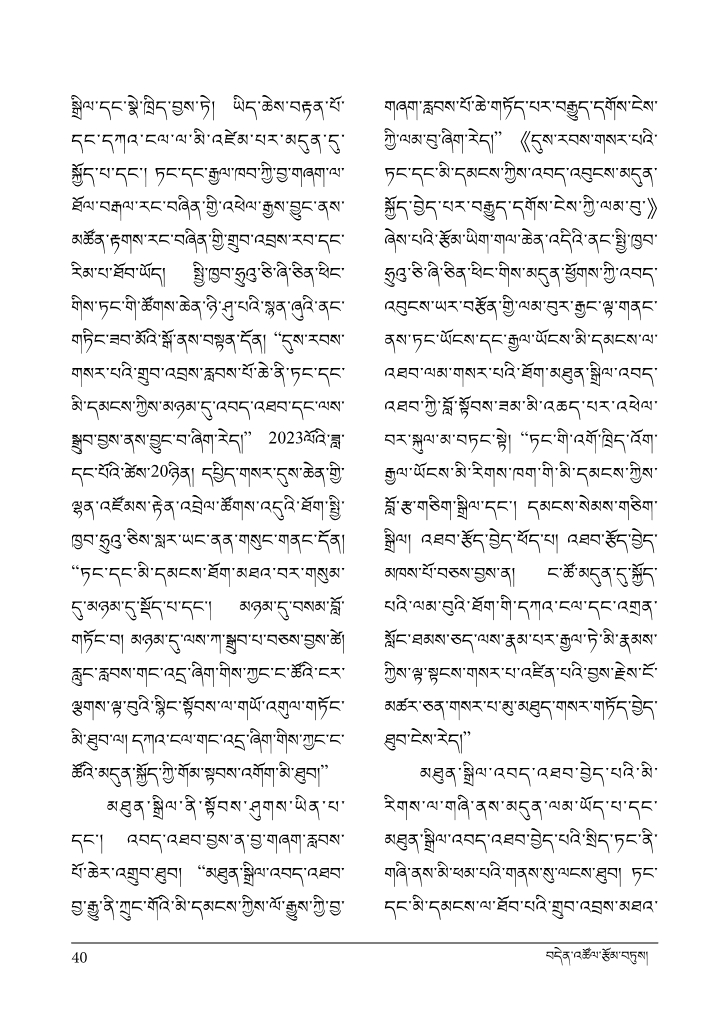 སྒྲིལ་དང་སྣེ་ཁྲིད་བྱས་ཏེ། ཡིད་ཆེས་བརྟན་པོ་
དང་དཀའ་ངལ་ལ་མི་འཛེམ་པར་མདུན་དུ་
སྐྱོད་པ་དང་། ཏང་དང་རྒྱལ་ཁབ་ཀྱི་བྱ་གཞག་ལ་
ཐོལ་བརྒལ་རང་བཞིན་གྱི་འཕེལ་རྒྱས་བྱུང་ནས་
མཚོན་རྟགས་རང་བཞིན་གྱི་གྲུབ་འབྲས་རབ་དང་
རིམ་པ་ཐོབ་ཡོད། སྤྱི་ཁྱབ་ཧྲུའུ་ཅི་ཞི་ཅིན་ཕིང་
གིས་ཏང་གི་ཚོགས་ཆེན་ཉི་ཤུ་པའི་སྙན་ཞུའི་ནང་
གཏིང་ཟབ་མོའི་སྒོ་ནས་བསྟན་དོན། “དུས་རབས་
གསར་པའི་གྲུབ་འབྲས་རླབས་པོ་ཆེ་ནི་ཏང་དང་
མི་དམངས་ཀྱིས་མཉམ་དུ་འབད་འཐབ་དང་ལས་
སྒྲུབ་བྱས་ནས་བྱུང་བ་ཞིག་རེད།” 2023ལོའི་ཟླ་
དང་པོའི་ཚེས་20ཉིན། དཔྱིད་གསར་དུས་ཆེན་གྱི་
ལྷན་འཛོམས་རྟེན་འབྲེལ་ཚོགས་འདུའི་ཐོག་སྤྱི་
ཁྱབ་ཧྲུའུ་ཅིས་སླར་ཡང་ནན་གསུང་གནང་དོན།
“ཏང་དང་མི་དམངས་ཐོག་མཐའ་བར་གསུམ་
དུ་མཉམ་དུ་སྡོད་པ་དང་། མཉམ་དུ་བསམ་བློ་
གཏོང་བ། མཉམ་དུ་ལས་ཀ་སྒྲུབ་པ་བཅས་བྱས་ཚེ།
རླུང་རླབས་གང་འདྲ་ཞིག་གིས་ཀྱང་ང་ཚོའི་ངར་
ལྕགས་ལྟ་བུའི་སྙིང་སྟོབས་ལ་གཡོ་འགུལ་གཏོང་
མི་ཐུབ་ལ། དཀའ་ངལ་གང་འདྲ་ཞིག་གིས་ཀྱང་ང་
ཚོའི་མདུན་སྐྱོད་ཀྱི་གོམ་སྟབས་འགོག་མི་ཐུབ།”
མཐུན་སྒྲིལ་ནི་སྟོབས་ཤུགས་ཡིན་པ་
དང་། འབད་འཐབ་བྱས་ན་བྱ་གཞག་རླབས་
པོ་ཆེར་འགྲུབ་ཐུབ། “མཐུན་སྒྲིལ་འབད་འཐབ་
བྱ་རྒྱུ་ནི་ཀྲུང་གོའི་མི་དམངས་ཀྱིས་ལོ་རྒྱུས་ཀྱི་བྱ་
གཞག་རླབས་པོ་ཆེ་གཏོད་པར་བརྒྱུད་དགོས་ངེས་
ཀྱི་ལམ་བུ་ཞིག་རེད།” 《དུས་རབས་གསར་པའི་
ཏང་དང་མི་དམངས་ཀྱིས་འབད་འབུངས་མདུན་
སྐྱོད་བྱེད་པར་བརྒྱུད་དགོས་ངེས་ཀྱི་ལམ་བུ་》
ཞེས་པའི་རྩོམ་ཡིག་གལ་ཆེན་འདིའི་ནང་སྤྱི་ཁྱབ་
ཧྲུའུ་ཅི་ཞི་ཅིན་ཕིང་གིས་མདུན་ཕྱོགས་ཀྱི་འབད་
འབུངས་ཡར་བརྩོན་གྱི་ལམ་བུར་རྒྱང་ལྟ་གནང་
ནས་ཏང་ཡོངས་དང་རྒྱལ་ཡོངས་མི་དམངས་ལ་
འཐབ་ལམ་གསར་པའི་ཐོག་མཐུན་སྒྲིལ་འབད་
འཐབ་ཀྱི་བློ་སྟོབས་ཟམ་མི་འཆད་པར་འཕེལ་
བར་སྐུལ་མ་བཏང་སྟེ། “ཏང་གི་འགོ་ཁྲིད་འོག་
རྒྱལ་ཡོངས་མི་རིགས་ཁག་གི་མི་དམངས་ཀྱིས་
བློ་རྩ་གཅིག་སྒྲིལ་དང་། དམངས་སེམས་གཅིག་
སྒྲིལ། འཐབ་རྩོད་བྱེད་ཕོད་པ། འཐབ་རྩོད་བྱེད་
མཁས་པོ་བཅས་བྱས་ན། ང་ཚོ་མདུན་དུ་སྐྱོད་
པའི་ལམ་བུའི་ཐོག་གི་དཀའ་ངལ་དང་འགྲན་
སློང་ཐམས་ཅད་ལས་རྣམ་པར་རྒྱལ་ཏེ་མི་རྣམས་
ཀྱིས་ལྟ་སྟངས་གསར་པ་འཛིན་པའི་བྱས་རྗེས་ངོ་
མཚར་ཅན་གསར་པ་མུ་མཐུད་གསར་གཏོད་བྱེད་
ཐུབ་ངེས་རེད།”
མཐུན་སྒྲིལ་འབད་འཐབ་བྱེད་པའི་མི་
རིགས་ལ་གཞི་ནས་མདུན་ལམ་ཡོད་པ་དང་
མཐུན་སྒྲིལ་འབད་འཐབ་བྱེད་པའི་སྲིད་ཏང་ནི་
གཞི་ནས་མི་ཕམ་པའི་གནས་སུ་ལངས་ཐུབ། ཏང་
དང་མི་དམངས་ལ་ཐོབ་པའི་གྲུབ་འབྲས་མཐའ་
40
བདེན་འཚོལ་རྩོམ་བཏུས།